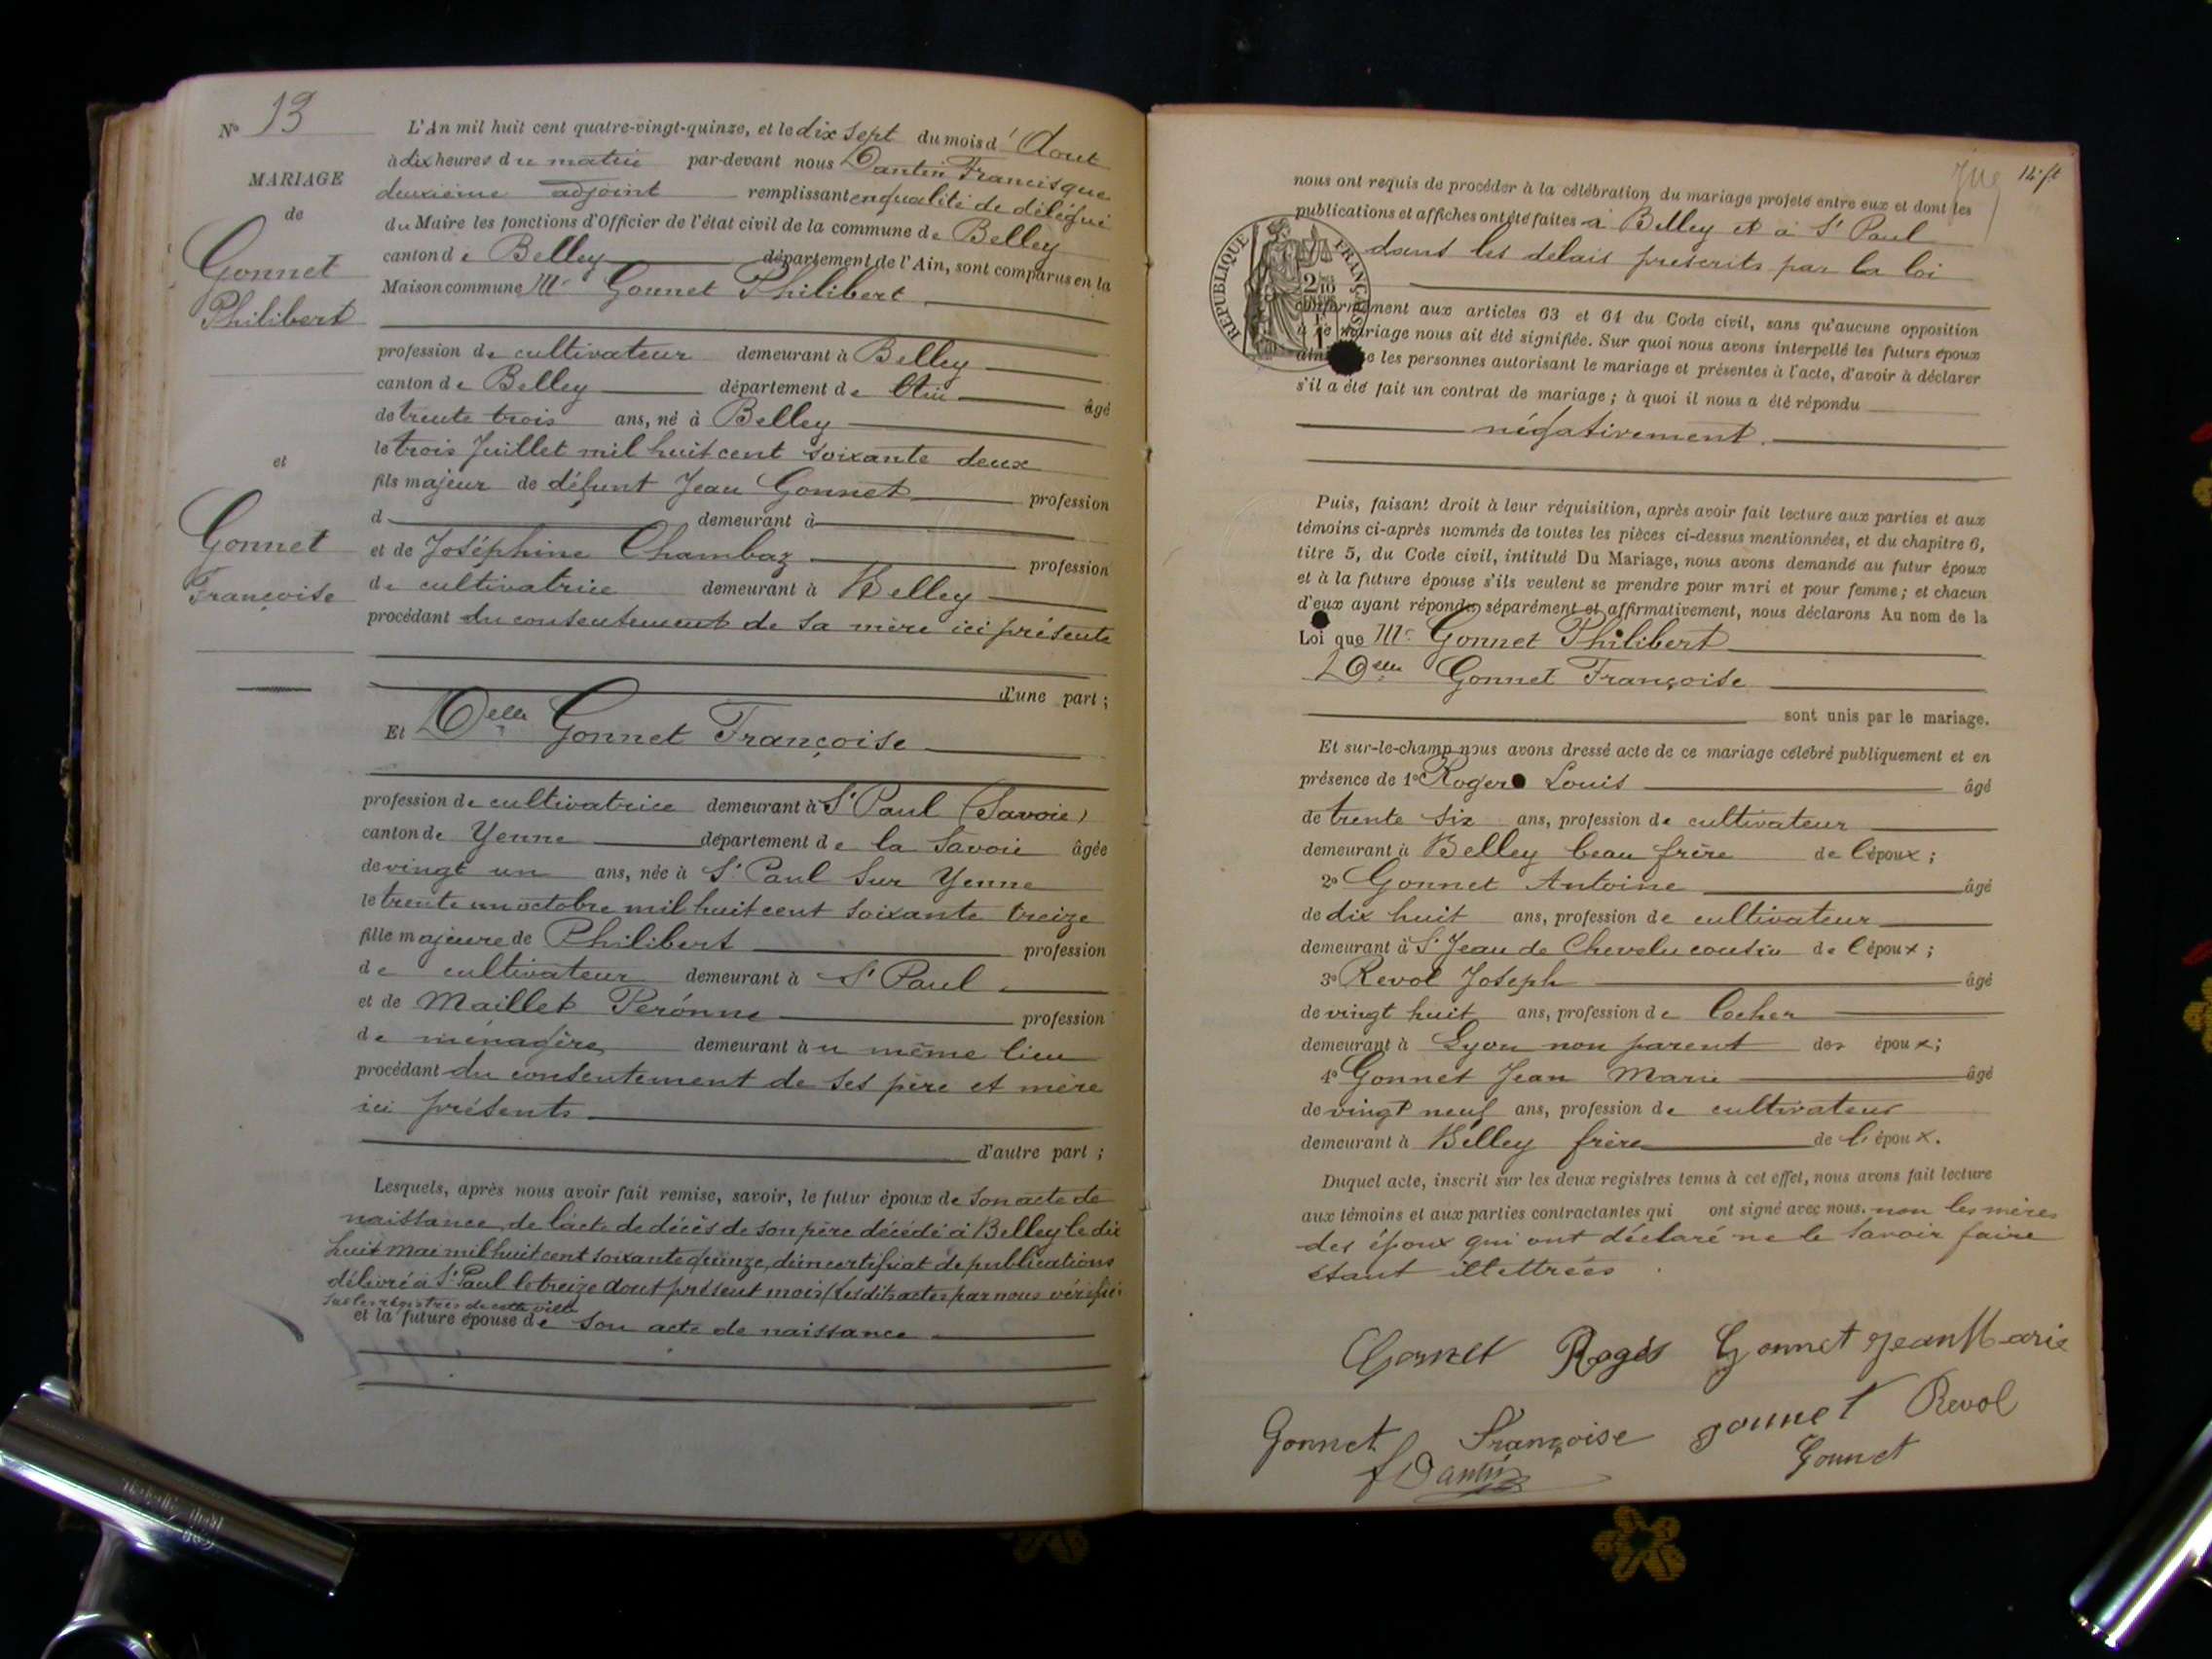 Nº 13
MARIAGE
de
Gonnet
Philibert
et
Gonnet
Françoise
L'An mil huit cent quatre-vingt-quinze, et le dix sept du mois d' Aout
à dix heures du matin par-devant nous Dantin Francisque
deuxième adjoint remplissant en qualité de délégué
du Maire les fonctions d'Officier de l'état civil de la commune de Belley
canton de Belley département de l'Ain, sont comparus en la
Maison commune Mr Gonnet Philibert
profession de cultivateur demeurant à Belley
canton de Belley département de l'Ain âgé
de trente trois ans, né à Belley
le trois Juillet mil huit cent soixante deux
fils majeur de défunt Jean Gonnet profession
d demeurant à
et de Joséphine Chambaz profession
de cultivatrice demeurant à Belley
procédant du consentement de sa mère ici présente
d'une part ;
Et Delle Gonnet Françoise
profession de cultivatrice demeurant à St Paul (Savoie)
canton de Yenne département de la Savoie âgée
de vingt un ans, née à St Paul sur Yenne
le trente un octobre mil huit cent soixante treize
fille majeure de Philibert profession
de cultivateur demeurant à St Paul
et de Maillet Péronne profession
de ménagère demeurant au même lieu
procédant du consentement de ses père et mère
ici présents
d'autre part ;
Lesquels, après nous avoir fait remise, savoir, le futur époux de son acte de
naissance, de l'acte de décès de son père décédé à Belley le dix
huit mai mil huit cent soixante quinze, d'un certificat de publications
délivré à St Paul le treize aout présent mois (lesdits actes par nous vérifiés
sur les registres de cette ville
et la future épouse de son acte de naissance
nous ont requis de procéder à la célébration du mariage projeté entre eux et dont les
publications et affiches ont été faites à Belley et à St Paul
dans les délais prescrits par la loi
RÉPUBLIQUE FRANÇAISE
conformément aux articles 63 et 64 du Code civil, sans qu'aucune opposition
à ce mariage nous ait été signifiée. Sur quoi nous avons interpellé les futurs époux
ainsi que les personnes autorisant le mariage et présentes à l'acte, d'avoir à déclarer
s'il a été fait un contrat de mariage ; à quoi il nous a été répondu
négativement.
Puis, faisant droit à leur réquisition, après avoir fait lecture aux parties et aux
témoins ci-après nommés de toutes les pièces ci-dessus mentionnées, et du chapitre 6,
titre 5, du Code civil, intitulé Du Mariage, nous avons demandé au futur époux
et à la future épouse s'ils veulent se prendre pour mari et pour femme ; et chacun
d'eux ayant répondu séparément et affirmativement, nous déclarons Au nom de la
Loi que Mr Gonnet Philibert
Delle Gonnet Françoise
sont unis par le mariage.
Et sur-le-champ nous avons dressé acte de ce mariage célébré publiquement et en
présence de 1º Roger Louis âgé
de trente six ans, profession de cultivateur
demeurant à Belley beau frère de l'époux ;
2º Gonnet Antoine âgé
de dix huit ans, profession de cultivateur
demeurant à St Jean de Chevelu cousin de l'époux ;
3º Revol Joseph âgé
de vingt huit ans, profession de Cocher
demeurant à Lyon non parent des époux ;
4º Gonnet Jean Marie âgé
de vingt neuf ans, profession de cultivateur
demeurant à Belley frère de l'époux.
Duquel acte, inscrit sur les deux registres tenus à cet effet, nous avons fait lecture
aux témoins et aux parties contractantes qui ont signé avec nous. non les mères
des époux qui ont déclaré ne le savoir faire
étant illettrées
Gonnet Rogés Gonnet Jean Marie
Gonnet Françoise gonnet Revol
f Dantin Gonnet